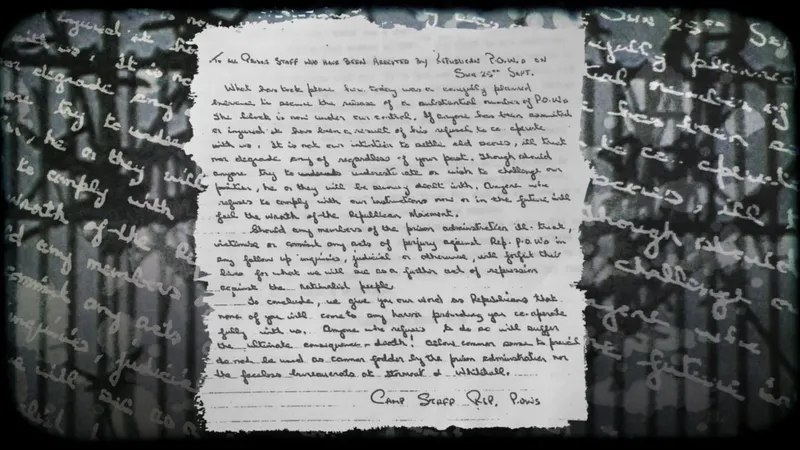 To all Prison Staff who have been arrested by Republican P.O.W.s on
Sun 25th Sept.
What has took place here today was a carefully planned
exercise to secure the release of a substantial number of P.O.W.s
The block is now under our control. If anyone has been assaulted
or injured it has been a result of his refusal to co-operate
with us. It is not our intention to settle old scores, ill treat
nor degrade any of regardless of your past. Though should
anyone try to underestimate or wish to challenge our
position, he or they will be severely dealt with. Anyone who
refuses to comply with our instructions now or in the future will
feel the wrath of the Republican Movement.
Should any members of the prison administration ill-treat,
victimise or commit any acts of perjury against Rep. P.O.W.s in
any follow up inquiries, judicial or otherwise, will forfeit their
lives for what we will see as a further act of repression
against the nationalist people
To conclude, we give you our word as Republicans that
none of you will come to any harm providing you co-operate
fully with us. Anyone who refuses to do so will suffer
the ultimate consequence - death! Allow common sense to prevail
do not be used as cannon fodder by the prison administration nor
the faceless bureaucrats at Stormont or Whitehall.
Camp Staff Rep. P.O.W.s